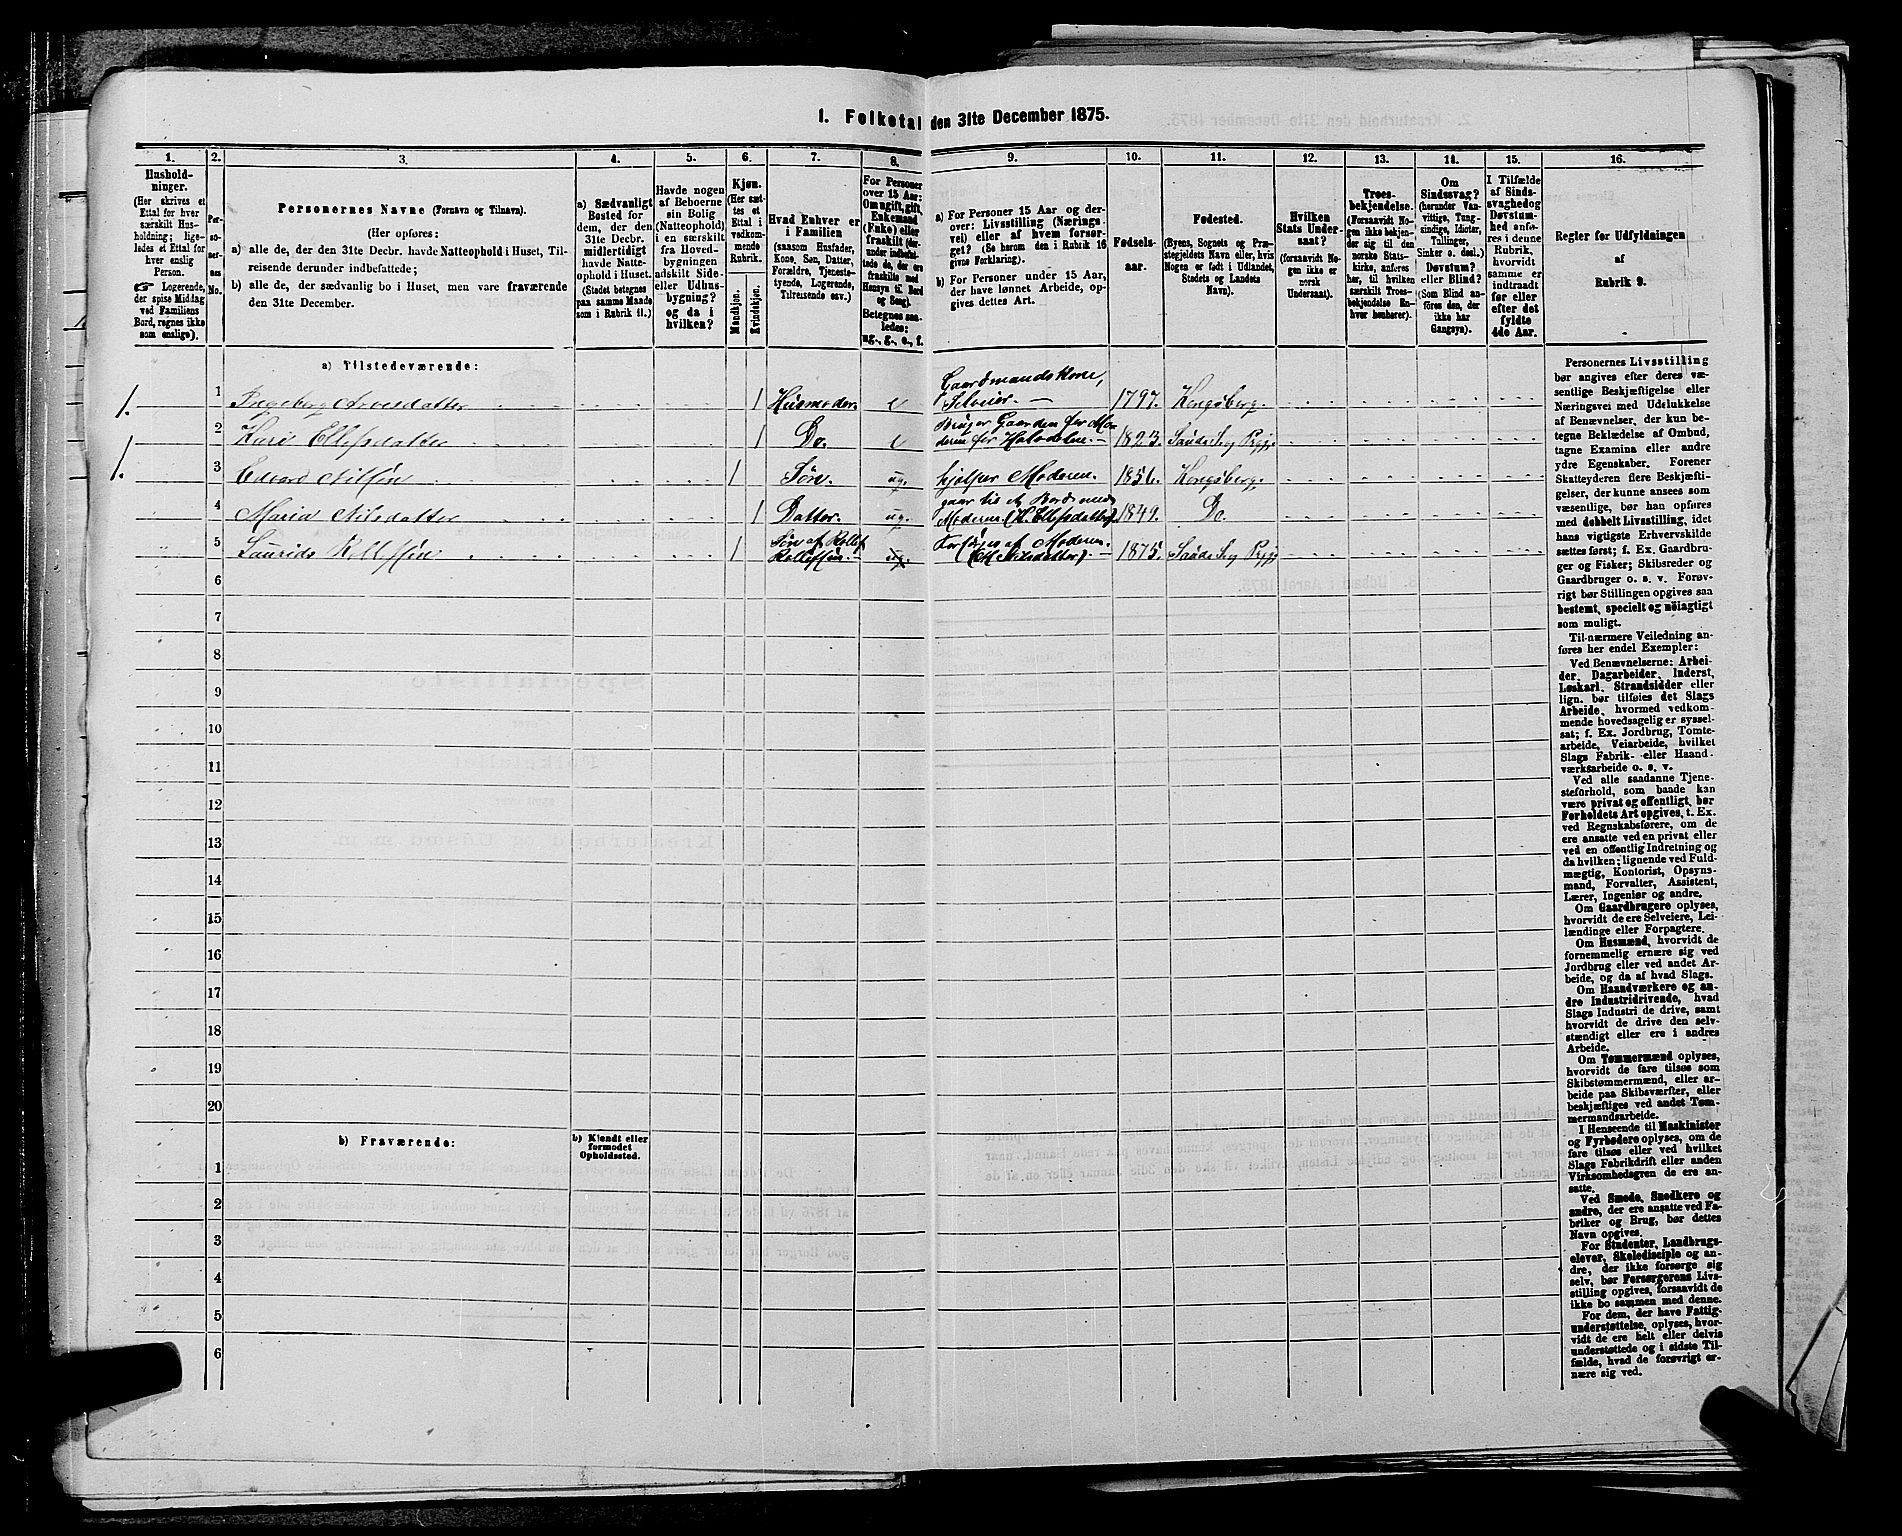 1. Folketal den 31te December 1875.
1. 2. 3. 4. 5. 6. 7. 8. 9. 10. 11. 12. 13. 14. 15. 16.
Hushold-
ninger.
(Her skrives et
Ettal for hver
særskilt Hus-
holdning; lige-
ledes et Ettal for
hver enslig
Person.
Logerende,
der spise Middag
ved Familiens
Bord, regnes ikke
som enslige).
Per-
so-
ner-
nes
No.
Personernes Navne (Fornavn og Tilnavn).
(Her opføres:
a) alle de, der den 31te Decbr. havde Natteophold i Huset, Til-
reisende derunder indbefattede;
b) alle de, der sædvanlig bo i Huset, men vare fraværende
den 31te December.
a) Sædvanligt
Bosted for
dem, der den
31te Decbr.
midlertidigt
havde Natte-
ophold i Huset.
(Stedet betegnes
paa samme Maade
som i Rubrik 11.)
Havde nogen
af Beboerne
sin Bolig
(Natteophold)
i en særskilt
fra Hoved-
bygningen
adskilt Side-
eller Udhus-
bygning?
og da i
hvilken?
Kjøn.
(Her sæt-
tes et
Ettal i
vedkom-
mende
Rubrik.
Mandkjøn.
Kvindekjøn.
Hvad Enhver er
i Familien
(saasom Husfader,
Kone, Søn, Datter,
Forældre, Tjeneste-
tyende, Logerende,
Tilreisende osv.)
For Personer
over 15 Aar:
Om ugift, gift,
Enkemand
(Enke) eller
fraskilt (der-
under indbefat-
tede de, der ere
fraskilte med
Hensyn til Bord
og Seng).
Betegnes saa-
ledes:
ug., g., e., f.
a) For Personer 15 Aar og der-
over: Livsstilling (Nærings-
vei) eller af hvem forsør-
get? (Se herom den i Rubrik 16
givne Forklaring).
b) For Personer under 15 Aar,
der have lønnet Arbeide, op-
gives dettes Art.
Fødsels-
aar.
Fødested.
(Byens, Sognets og Præ-
stegjeldets Navn eller, hvis
Nogen er født i Udlandet,
Stedets og Landets
Navn).
Hvilken
Stats Under-
saat?
(forsaavidt No-
gen ikke er
norsk
Undersaat).
Troes-
bekjendelse.
(Forsaavidt No-
gen ikke bekjen-
der sig til den
norske Stats-
kirke, anføres
her, til hvilken
særskilt Troes-
bekjendelse En-
hver henhører).
Om
Sindssvag?
(herunder Van-
vittige, Tung-
sindige, Idioter,
Tullinger,
Sinker o. desl.).
Døvstum?
eller Blind?
(Som Blind an-
føres den, der
ikke har
Gangsyn).
I Tilfælde
af Sinds-
svaghed og
Døvstum-
hed anfø-
res i denne
Rubrik,
hvorvidt
samme er
indtraadt
før eller
efter det
fyldte
4de Aar.
Regler for Udfyldningen
af
Rubrik 9.
a) Tilstedeværende:
1. 1 Ingeborg Arvesdatter 1 Husmoder e Gaardmandskone, Selveier 1797. Kongsberg.
2 Kari Ellefsdatter 1 Do. e Bruger Gaarden for Mo- deren for Halvdelen 1823. Sauda Sog Prgj.
1. 3 Edvard Nilssøn 1 Søn. ug. hjælper Moderen. 1856. Kongsberg.
4 Maria Nilsdatter 1 Datter. ug. gaar til et Bord med Moderen. (K. Ellefsdatter). 1849. Do.
5 Laurids Rollefssøn 1 Søn af Rollef Rollefssøn. ug. Forsørges af Moderen. (M. Nilsdatter) 1875. Sauda Sog Prgj.
6
7
8
9
10
11
12
13
14
15
16
17
18
19
20
b) Fraværende:
b) Kjendt eller
formodet
Opholdssted.
1
2
3
4
5
6
Personernes Livsstilling
bør angives efter deres væ-
sentlige Beskjæftigelse eller
Næringsvei med Udelukkelse
af Benævnelser, der kun be-
tegne Beklædelse af Ombud,
tagne Examina eller andre
ydre Egenskaber. Forener
Skatteyderen flere Beskjæfti-
gelser, der kunne ansees som
væsentlige, bør han opføres
med dobbelt Livsstilling, idet
hans vigtigste Erhvervskilde
sættes først; f. Ex. Gaardbru-
ger og Fisker; Skibsreder og
Gaardbruger o. s. v. Forøv-
rigt bør Stillingen opgives saa
bestemt, specielt og nøiagtigt
som muligt.
Til nærmere Veiledning an-
føres her endel Exempler:
Ved Benævnelserne: Arbei-
der, Dagarbeider, Inderst,
Løskarl, Strandsidder eller
lign. bør tilføies det Slags
Arbeide, hvormed vedkom-
mende hovedsagelig er syssel-
sat; f. Ex. Jordbrug, Tomte-
arbeide, Veiarbeide, hvilket
Slags Fabrik- eller Haand-
værksarbeide o. s. v.
Ved alle saadanne Tjene-
steforhold, som baade kan
være privat og offentligt, bør
Forholdets Art opgives, t. Ex.
ved Regnskabsførere, om de
ere ansatte ved en privat eller
ved en offentlig Indretning og
da hvilken; lignende ved Fuld-
mægtig, Kontorist, Opsyns-
mand, Forvalter, Assistent,
Lærer, Ingeniør og andre.
Om Gaardbrugere oplyses,
hvorvidt de ere Selveiere, Lei-
lændinge eller Forpagtere.
Om Husmænd, hvorvidt de
fornemmelig ernære sig ved
Jordbrug eller ved andet Ar-
beide, og da af hvad Slags.
Om Haandværkere og an-
dre Industridrivende, hvad
Slags Industri de drive, samt
hvorvidt de drive den selv-
stændigt eller ere i andres
Arbeide.
Om Tømmermænd oplyses,
hvorvidt de fare tilsøs som
Skibstømmermænd, eller ar-
beide paa Skibsværfter, eller
beskjæftiges ved andet Tøm-
mermandsarbeide.
I Henseende til Maskinister
og Fyrbødere oplyses, om de
fare tilsøs eller ved hvilket
Slags Fabrikdrift eller anden
Virksomhedsgren de ere an-
satte.
Ved Smede, Snedkere og
andre, der ere ansatte ved Fa-
briker og Brug, bør dettes
Navn opgives.
For Studenter, Landbrugs-
elever, Skoledisciple og an-
dre, der ikke forsørge sig
selv, bør Forsørgerens Livs-
stilling opgives, forsaavidt de
ikke bo sammen med denne.
For dem, der have Fattig-
understøttelse, oplyses, hvor-
vidt de ere helt eller delvis
understøttede og i sidste Til-
fælde, hvad de forøvrigt er-
nære sig ved.